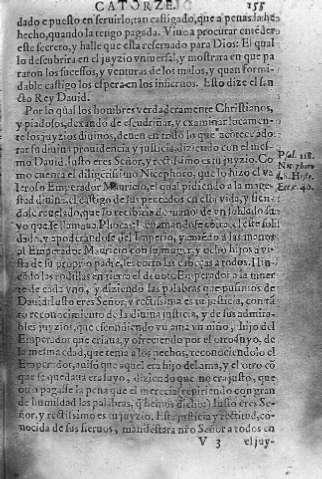 CATORZE. 155
dado e puesto en seruirlo, tan castigado, que a penas la he
hecho, quando la tengo pagada. Vino a procurar entēder
este secreto, y halle que esta reseruado para Dios: El qual
lo descubrira en el juyzio vniuersal, y mostrara en que pa
raron los sucessos, y venturas de los malos, y quan formi
dable castigo los espera en los infiernos. Esto dize el san
cto Rey Dauid.
Por lo qual los hombres verdaderamente Christianos,
y piadosos, dexando de escudriñar, y examinar locamen-
te los juyzios diuinos, deuen en todo lo que acontece ado
rar su diuina prouidencia y justicia, diziendo con el mes
mo Dauid. Iusto eres Señor, y rectissimo es tu juyzio. Co
mo cuenta el diligentissimo Nicephoro, que lo hizo el va
leroso Emperador Mauricio, el qual pidiendo a la mages
tad diuina, el castigo de sus peccados en esta vida, y sien
dole reuelado, que lo recibiria de mano de vn soldado su
yo que se llamaua Phocas:
dado, y apoderandose del Imperio, y
al Emperador Mauricio con su muger, y ocho hijos y vi
sta de su proprio padre, les corto las cabeças a todos. Hin
co las rodillas en tierra el deuoto Emperador a la muerte
de cada vno, y diziendo las palabras que pusimos de
Dauid: Iusto eres Señor, y rectissima es tu justicia, con tā
to reconocimiento de la diuina justicia, y de sus admira-
bles juyzios, que escondiendo vn ama vn niño, hijo del
Emperador que criaua, y ofreciendo por el otro suyo, de
la mesma edad, que tenia a los pechos, reconociendolo el
Emperador, auiso que aquel era hijo del ama, y el otro cō
que se quedaua era suyo, diziendo que no era justo, que
otro pagasse la pena que el merecia repitiendo con gran
de humildad las palabras, q̄ hemos dicho: Iusto eres Se-
ñor, y rectissimo es tu juyzio. Esta justicia y rectitud, co-
nocida de sus sieruos, manifestara nro Señor a todos en
V 3 el juy-
Psal. 118.
Nicephoro
Hist.
40.